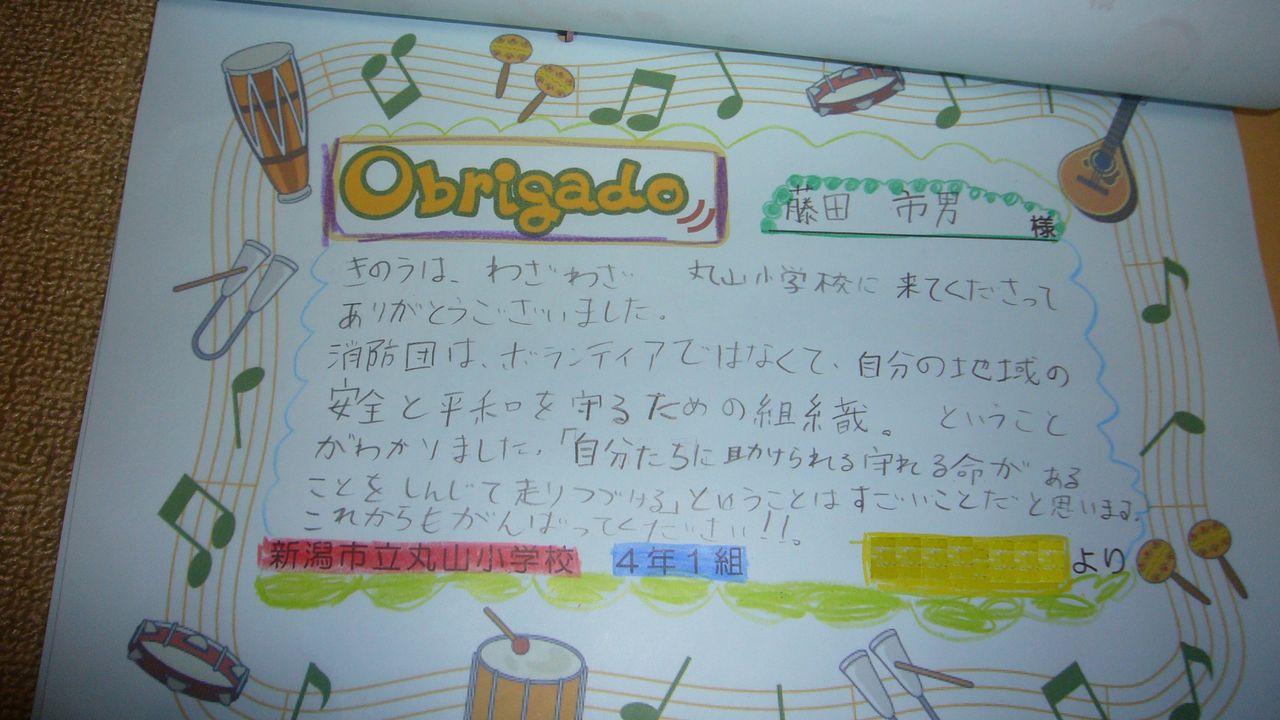 Obrigado
藤田 市男 様
きのうは、わざわざ 丸山小学校に 来てくださって
ありがとうございました。
消防団は、ボランティアではなくて、自分の地域の
安全と平和を守るための組織。 ということ
がわかりました。「自分たちに助けられる守れる命がある
ことをしんじて走りつづける」ということはすごいことだと思いまる。
これからもがんばってください!!。
新潟市立丸山小学校 4年1組 より